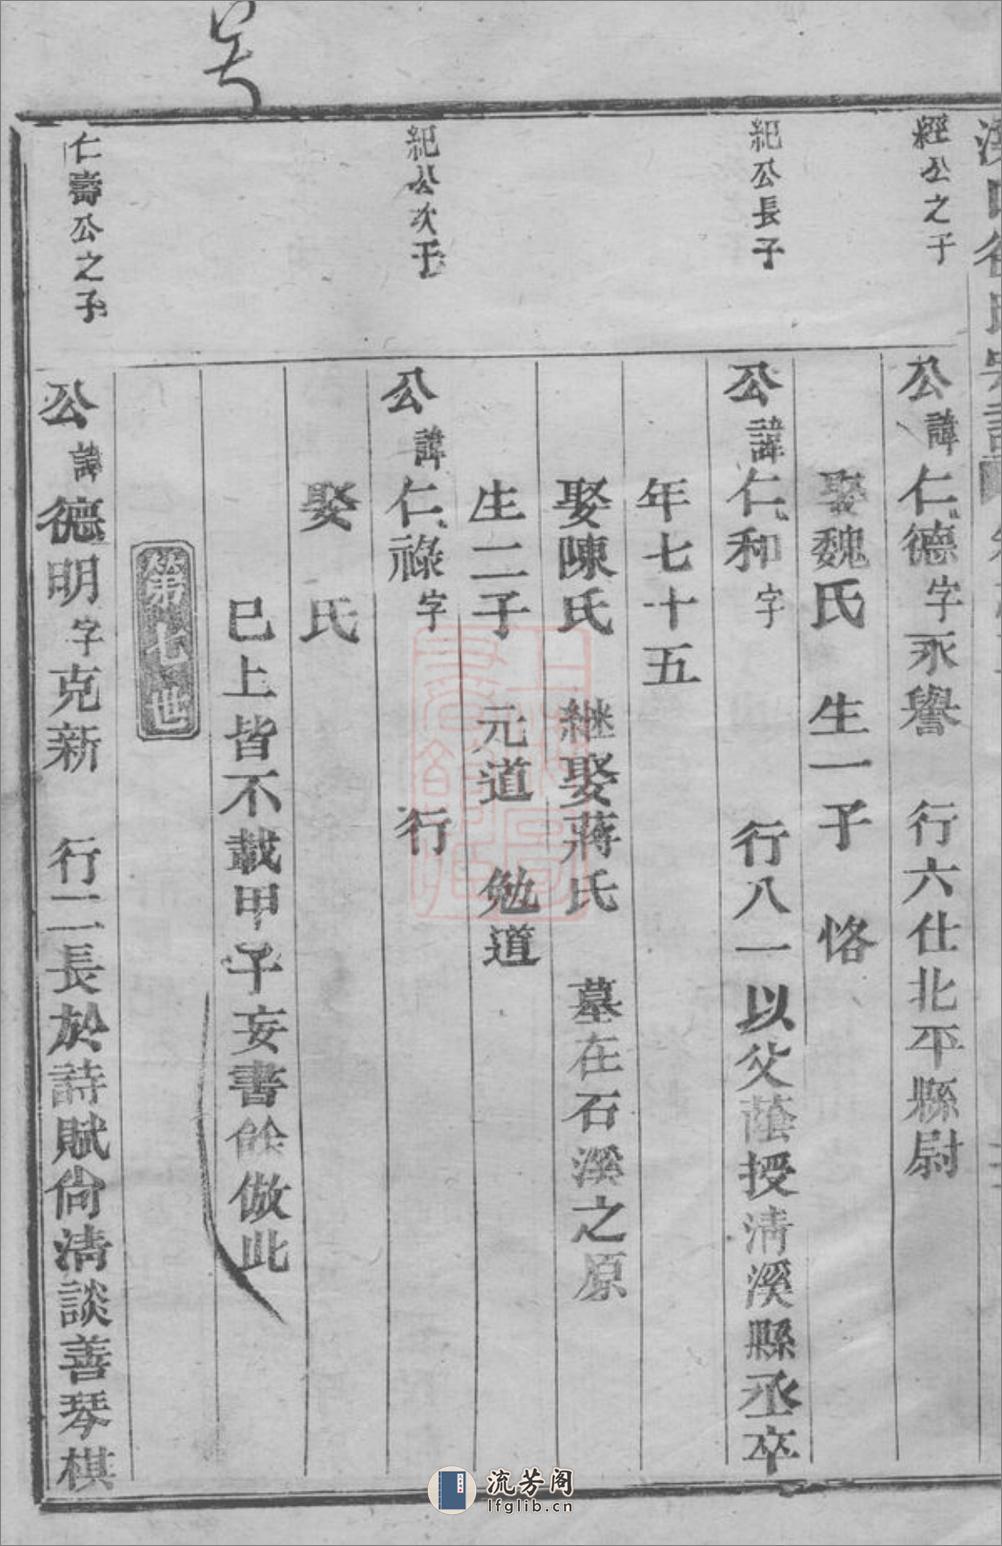 經公之子
公諱仁德字永譽 行六仕北平縣尉
娶魏氏 生一子 恪
紀公長子
公諱仁和字 行八一以父蔭授清溪縣丞卒
年七十五
娶陳氏 継娶蔣氏 墓在石溪之原
生二子 元道 勉道
紀公次子
公諱仁祿字 行
娶 氏
巳上皆不載甲子妄書餘倣此
第七世
仁壽公之子
公諱德明字克新 行二長於詩賦尙清談善琴棋
流芳阁
lfglib.cn